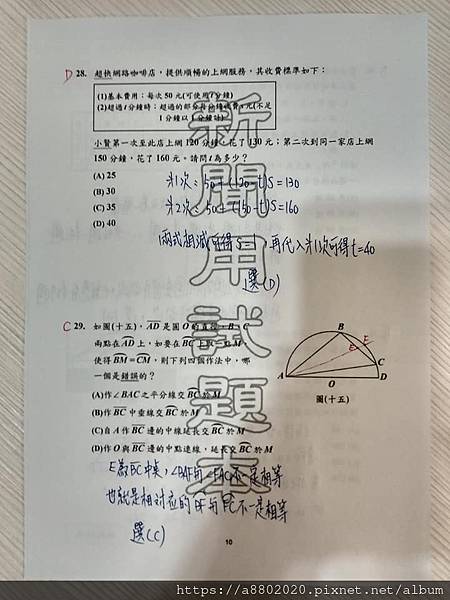 D 28. 超快網路咖啡店，提供順暢的上網服務，其收費標準如下：
(1)基本費用：每次 50 元(可使用 t 分鐘)
(2)超過 t 分鐘時：超過的部分每分鐘收費 s 元(不足
1 分鐘以 1 分鐘計)
小賢第一次至此店上網 120 分鐘，花了 130 元；第二次到同一家店上網
150 分鐘，花了 160 元。請問 t 為多少？
(A) 25
(B) 30
(C) 35
(D) 40
第1次：50+(120-t)S=130
第2次：50+(150-t)S=160
兩式相減可得 S=1，再代入第1次可得 t=40
選(D)
C 29. 如圖(十五)，AD 是圓 O 的直徑，B、C
兩點在 AD 上，如要在 BC 上取一點 M，
使得 BM=CM，則下列四個作法中，哪
一個是錯誤的？
(A)作∠BAC 之平分線交 BC 於 M
(B)作 BC 中垂線交 BC 於 M
(C)自 A 作 BC 邊的中線延長交 BC 於 M
(D)作 O 與 BC 邊的中點連線，延長交 BC 於 M
B
E
F
C
A
O
D
圖(十五)
E為BC中點，∠BAF與∠FAC不一定相等
也就是相對应的 BF 与 FC 不一定相等
選(C)
新聞用試題本
10
https://a8802020.pixnet.net/album